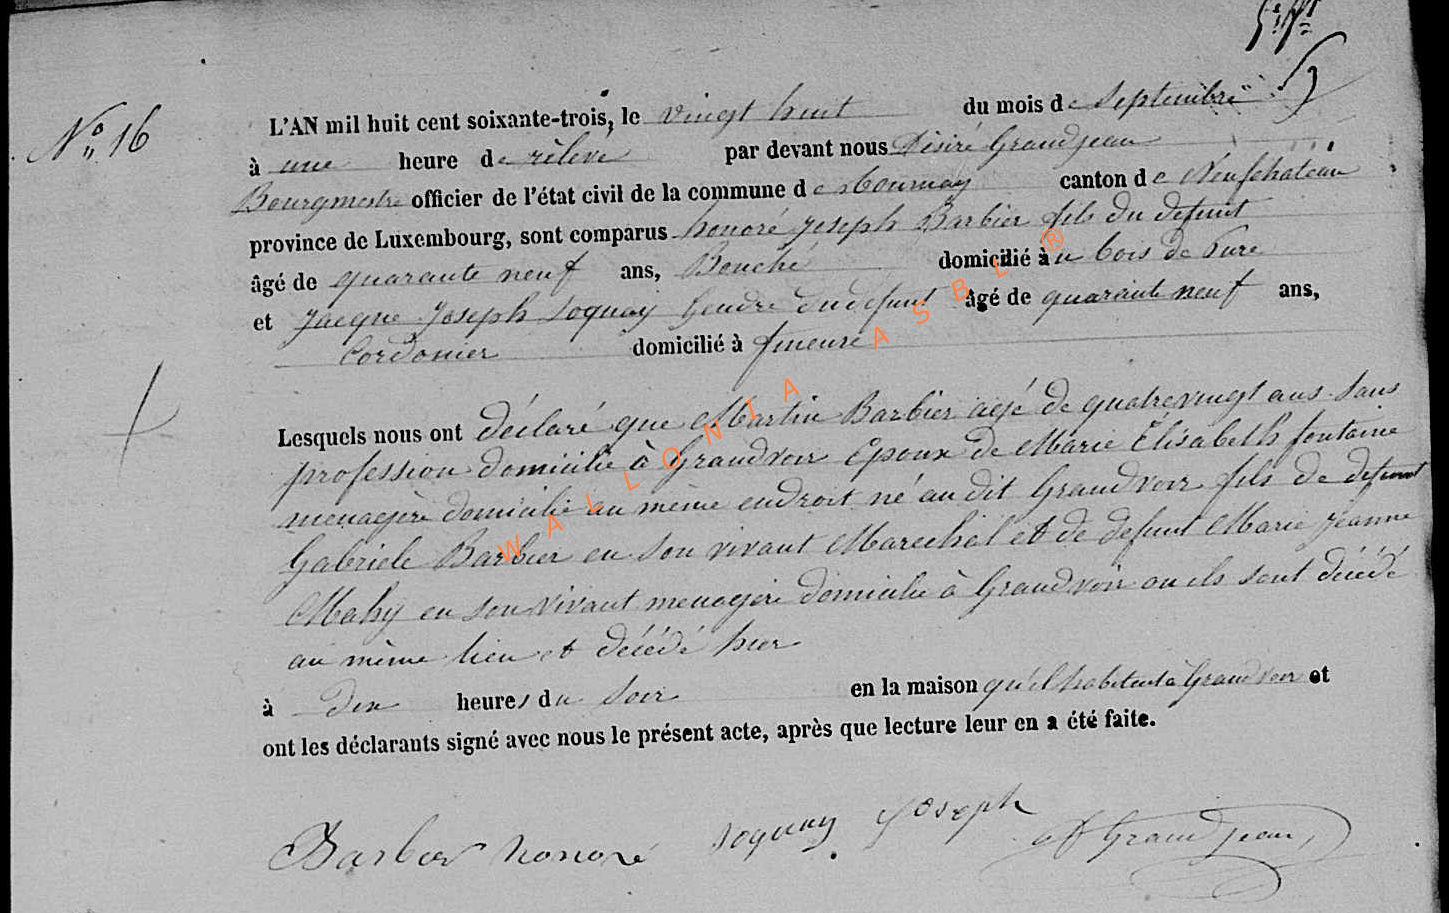 No 16
L'AN mil huit cent soixante-trois, le vingt huit du mois de Septembre
à une heure de rélevé par devant nous Désiré Grandjean
Bourgmestre officier de l'état civil de la commune de Tournay canton de Neufchateau
province de Luxembourg, sont comparus honoré Joseph Barbier fils du defunt
âgé de quarante neuf ans, domicilié au bois de
et Jacque Joseph Soquay Gendre du defunt âgé de quarante neuf ans,
Cordonier domicilié à
Lesquels nous ont déclaré que Martin Barbier agé de quatrevingt ans sans
profession domicilié à Grandvoir Epoux de Marie Élisabeth fontaine
menagère domicilié au même endroit né au dit Grandvoir fils de defunt
Gabriele Barbier en son vivant Marechal et de defunt Marie Jeanne
Mahy en son vivant menagère domicilié à Grandvoir ou ils sont décédé
au même lieu et décédé hier
à dix heures du Soir en la maison qu'il habitent à Grandvoir et
ont les déclarants signé avec nous le présent acte, après que lecture leur en a été faite.
Barbier honoré Soquay Joseph Grandjean
WALLONIA ASBL ®